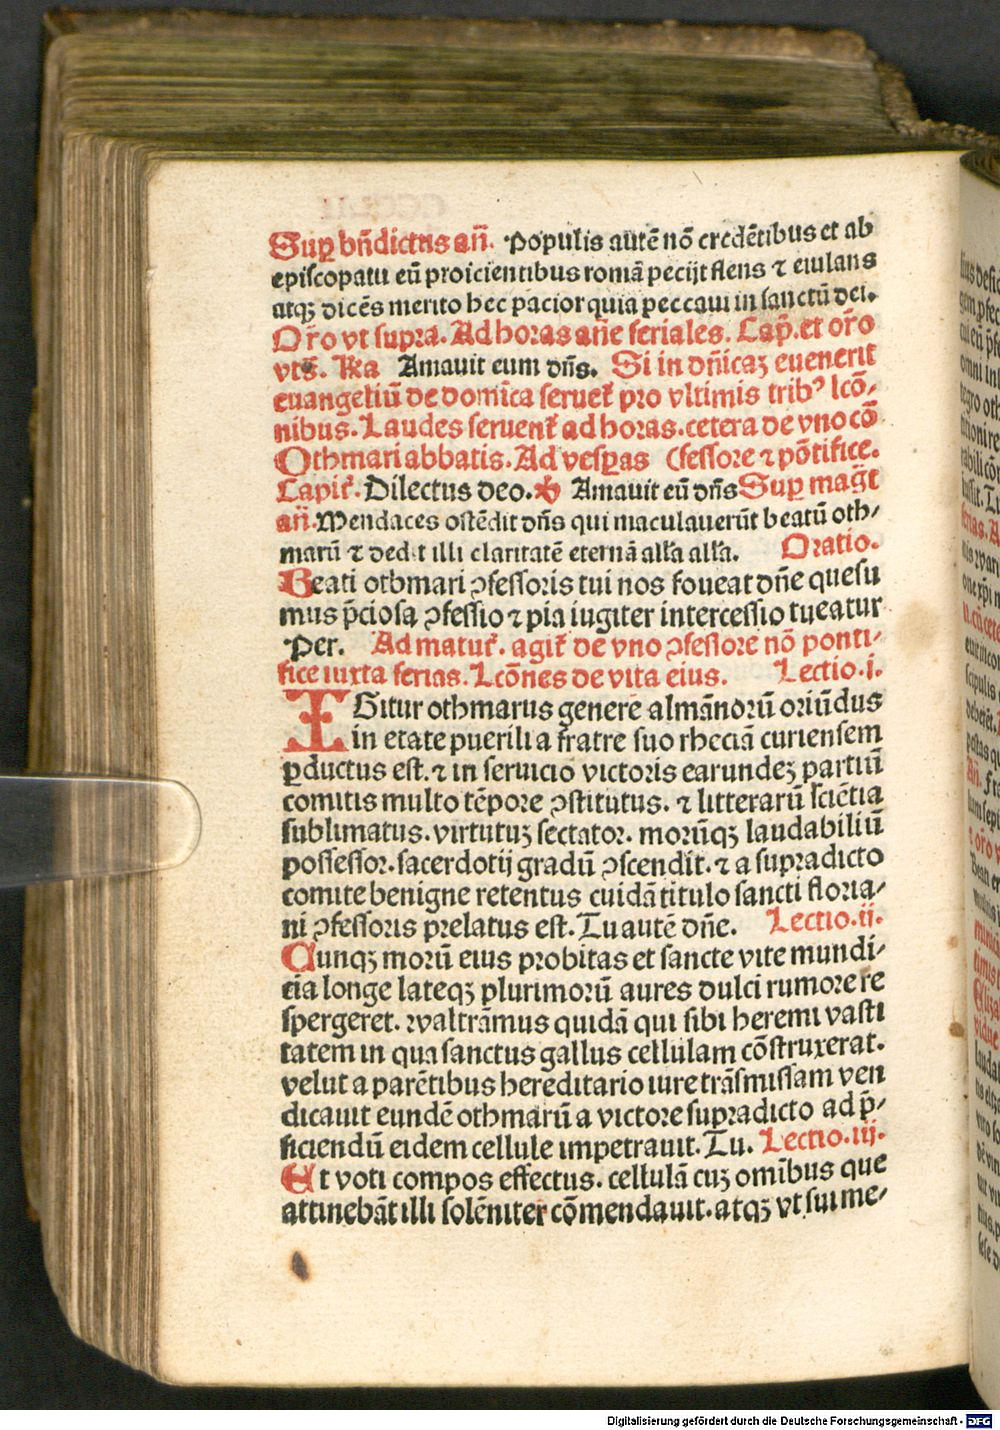 Suꝑ bn̄dictus an̄. Populis autē nō credētibus et ab
episcopatu eū proicientibus romā pecijt flens ⁊ eiulans
atqꝫ dicēs merito hec pacior quia peccaui in sanctū dei.
Or̄o vt supra. Ad horas an̄e feriales. Cap̄. et or̄o
vts̄. R̄a Amauit eum dn̄s. Si in dn̄icaꝫ euenerit
euangeliū de domīca seruet᷑ pro vltimis trib⁹ lcō⸗
nibus. Laudes seruent᷑ ad horas. cetera de vno cō
Othmari abbatis. Ad vesꝑas (fessore ⁊ pōtifice.
Capit᷑. Dilectus deo. ꝶ Amauit eū dn̄s Suꝑ maḡt
an̄. Mendaces ostēdit dn̄s qui maculauerūt beatū oth⸗
marū ⁊ dedit illi claritatē eternā all'a all'a. Oratio.
Beati othmari ꝯfessoris tui nos foueat dn̄e quesu
mus p̄ciosa ꝯfessio ⁊ pia iugiter intercessio tueatur
Per. Ad matut᷑. agit᷑ de vno ꝯfessore nō ponti⸗
fice iuxta ferias. Lcōnes de vita eius. Lectio.i.
IGitur othmarus genere almānorū oriūdus
in etate puerili a fratre suo rheciā curiensem
ꝑductus est. ⁊ in seruicio victoris earundeꝫ partiū
comitis multo tēpore ꝯstitutus. ⁊ litterarū sciētia
sublimatus. virtutuꝫ sectator. morūqꝫ laudabiliū
possessor. sacerdotij gradū ꝯscendit. ⁊ a supradicto
comite benigne retentus cuidā titulo sancti floria⸗
ni ꝯfessoris prelatus est. Tu autē dn̄e. Lectio.ii.
Cunqꝫ morū eius probitas et sancte vite mundi⸗
cia longe lateqꝫ plurimorū aures dulci rumore re
spergeret. waltrāmus quidā qui sibi heremi vasti
tatem in qua sanctus gallus cellulam cōstruxerat.
velut a parētibus hereditario iure trāsmissam ven
dicauit eundē othmarū a victore supradicto ad p̄⸗
ficiendū eidem cellule impetrauit. Tu. Lectio.iij.
Et voti compos effectus. cellulā cuꝫ omībus que
attinebāt illi solēniter cōmendauit. atqꝫ vt sui me⸗
Digitalisierung gefördert durch die Deutsche Forschungsgemeinschaft - DFG